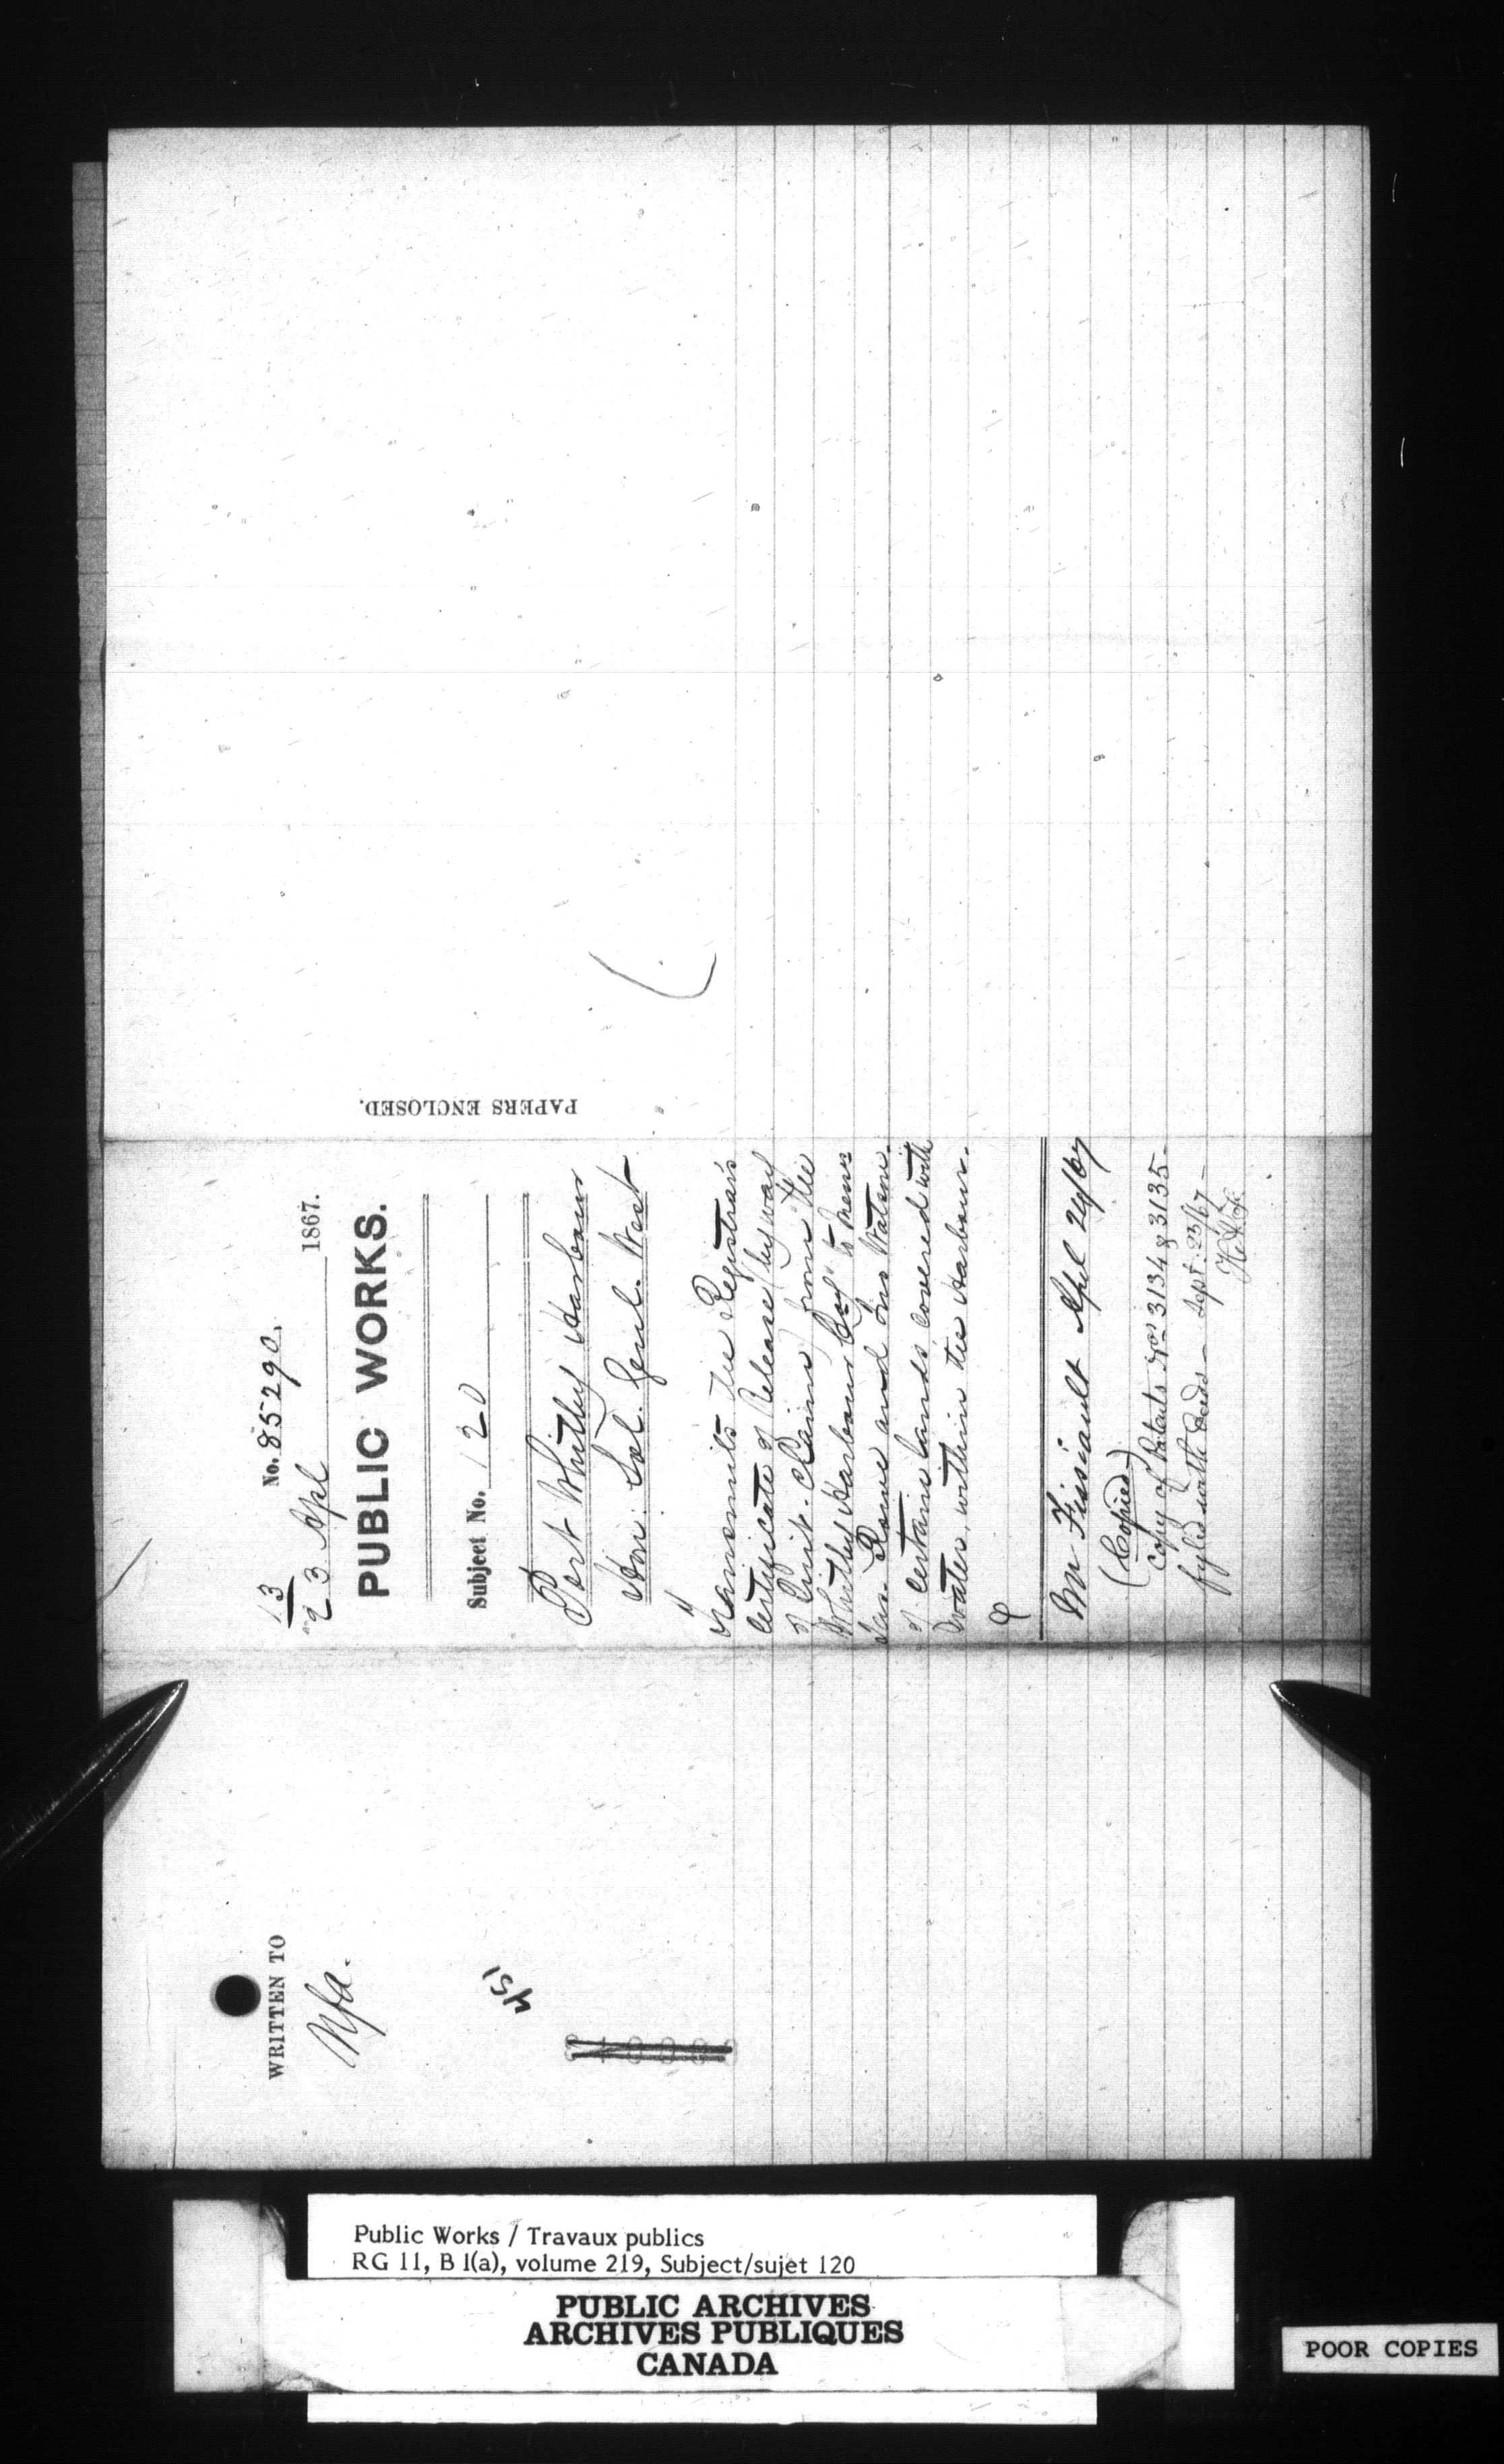 13
No. 85290.
23 Apl 1867.
PUBLIC WORKS.
Subject No. 120
Port Whitby Harbour
Hon. Sol. Genl. West
Transmits the Registrar's
Certificate of Release (by way
of Quit-Claim) from the
Whitby Harbour Coy to Messrs
Rowe and Jno Watson.
of certain lands covered with
water, within the Harbour.
Mr Fissiault Apl 24/67
(Copied)
Copy of Patents Nos 3134 & 3135-
fyled with Deeds - Sept. 23/67 -
PAPERS ENCLOSED.
WRITTEN TO
Nfa.
451
Public Works / Travaux publics
RG 11, B 1(a), volume 219, Subject/sujet 120
PUBLIC ARCHIVES
ARCHIVES PUBLIQUES
CANADA
POOR COPIES